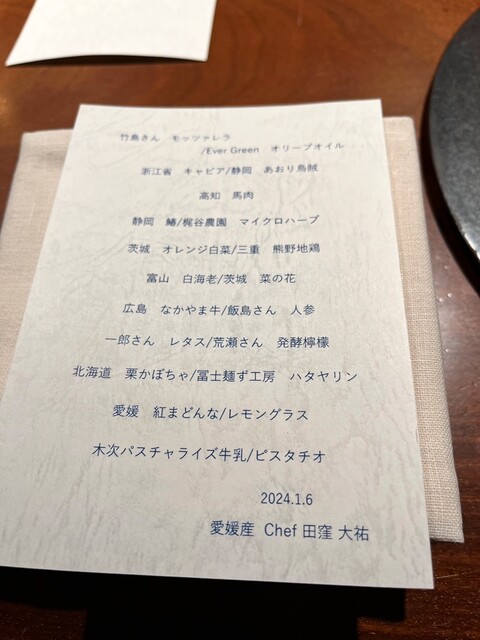 竹島さん モッツァレラ
/Ever Green オリーブオイル
浙江省 キャビア/静岡 あおり烏賊
高知 馬肉
静岡 鰆/梶谷農園 マイクロハーブ
茨城 オレンジ白菜/三重 熊野地鶏
富山 白海老/茨城 菜の花
広島 なかやま牛/飯島さん 人参
一郎さん レタス/荒瀬さん 発酵檸檬
北海道 栗かぼちゃ/冨士麺ず工房 ハタヤリン
愛媛 紅まどんな/レモングラス
木次パスチャライズ牛乳/ピスタチオ
2024.1.6
愛媛産 Chef 田窪 大祐